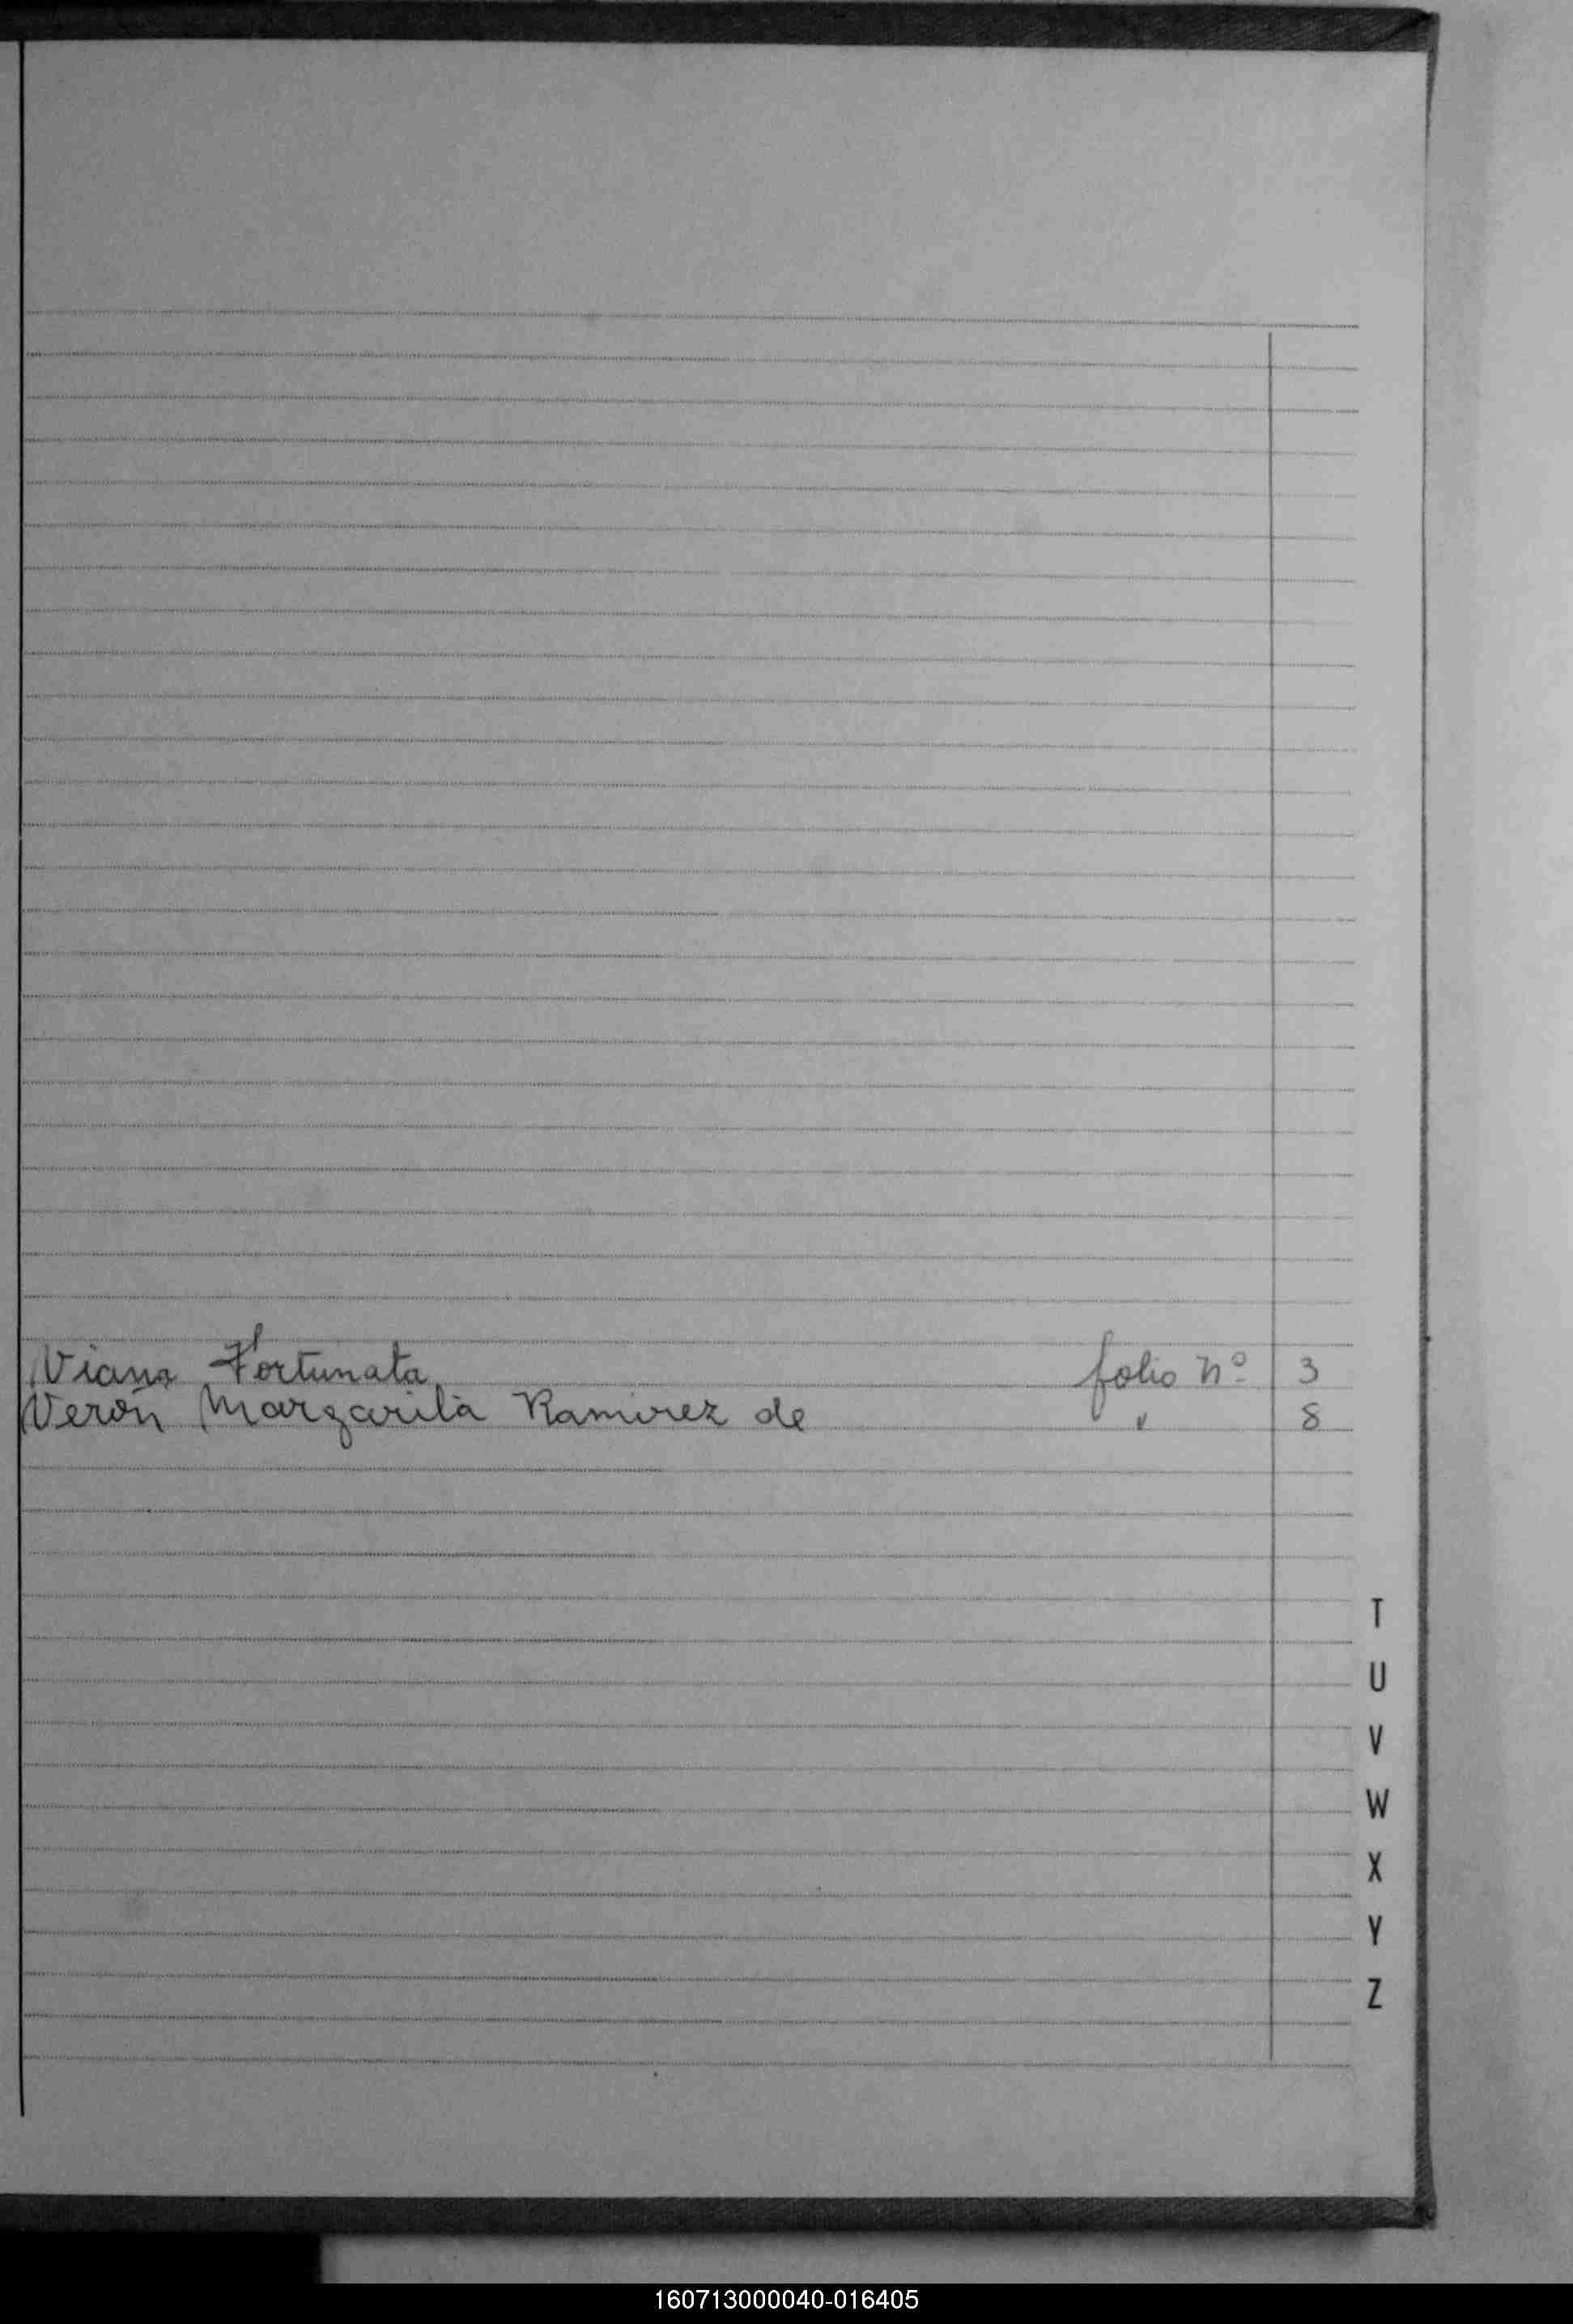 Viana Fortunata folio Nº 3
Verón Margarita Ramirez de " 8
T
U
V
W
X
Y
Z
160713000040-016405